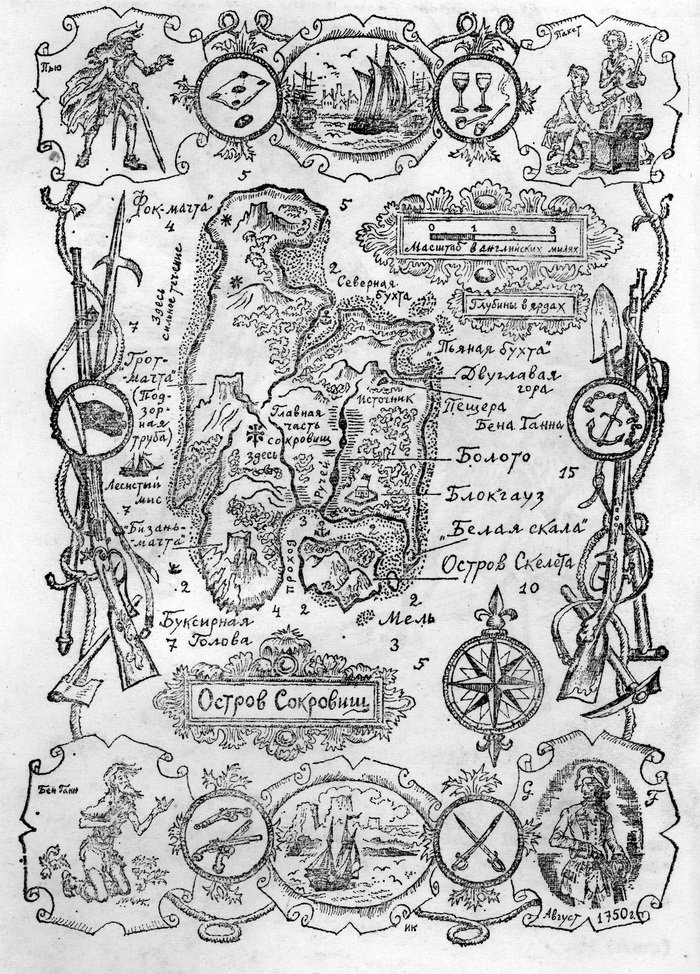 Пью
Пакет
5
„Фок-мачта"
4
5
0 1 2 3
Масштаб в английских милях
Здесь
сильное течение
2
Северная
бухта
Глубины в ярдах
7
„Пьяная бухта"
Грот-
мачта"
(Под-
зор-
ная
труба)
Двуглавая
гора
Источник
Пещера
Бена Ганна
Главная
часть
сокровищ
здесь
Болото
15
Ручей
Лесистый
мыс
7
Блокгауз
„Бизань-
мачта"
3
2
„Белая скала"
проход
Остров Скелета
2
10
4
2
2
Буксирная
Голова
7
Мель
3
5
Остров Сокровищ
Бен Ганн
G F
Август 1750 г.
ИК